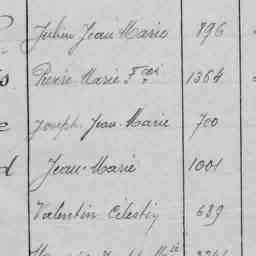 Julien Jean Marie 896
Pierre Marie Fçois 1364
Joseph Jean-Marie 700
Jean-Marie 1001
Valentin Célestin 689